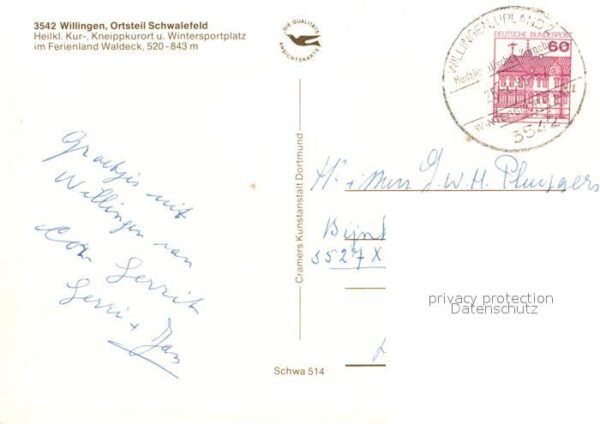 3542 Willingen, Ortsteil Schwalefeld
Heilkl. Kur-, Kneippkurort u. Wintersportplatz
im Ferienland Waldeck, 520-843 m
DIE QUALITÄTS
ANSICHTSKARTE
WILLINGEN, UPLAND
3542
DEUTSCHE BUNDESPOST
60
Groetjes uit
Willingen van
Cor Gerrit
Gerri + Jan
Cramers Kunstanstalt Dortmund
Schwa 514
G.W.H.
3527 X
privacy protection
Datenschutz